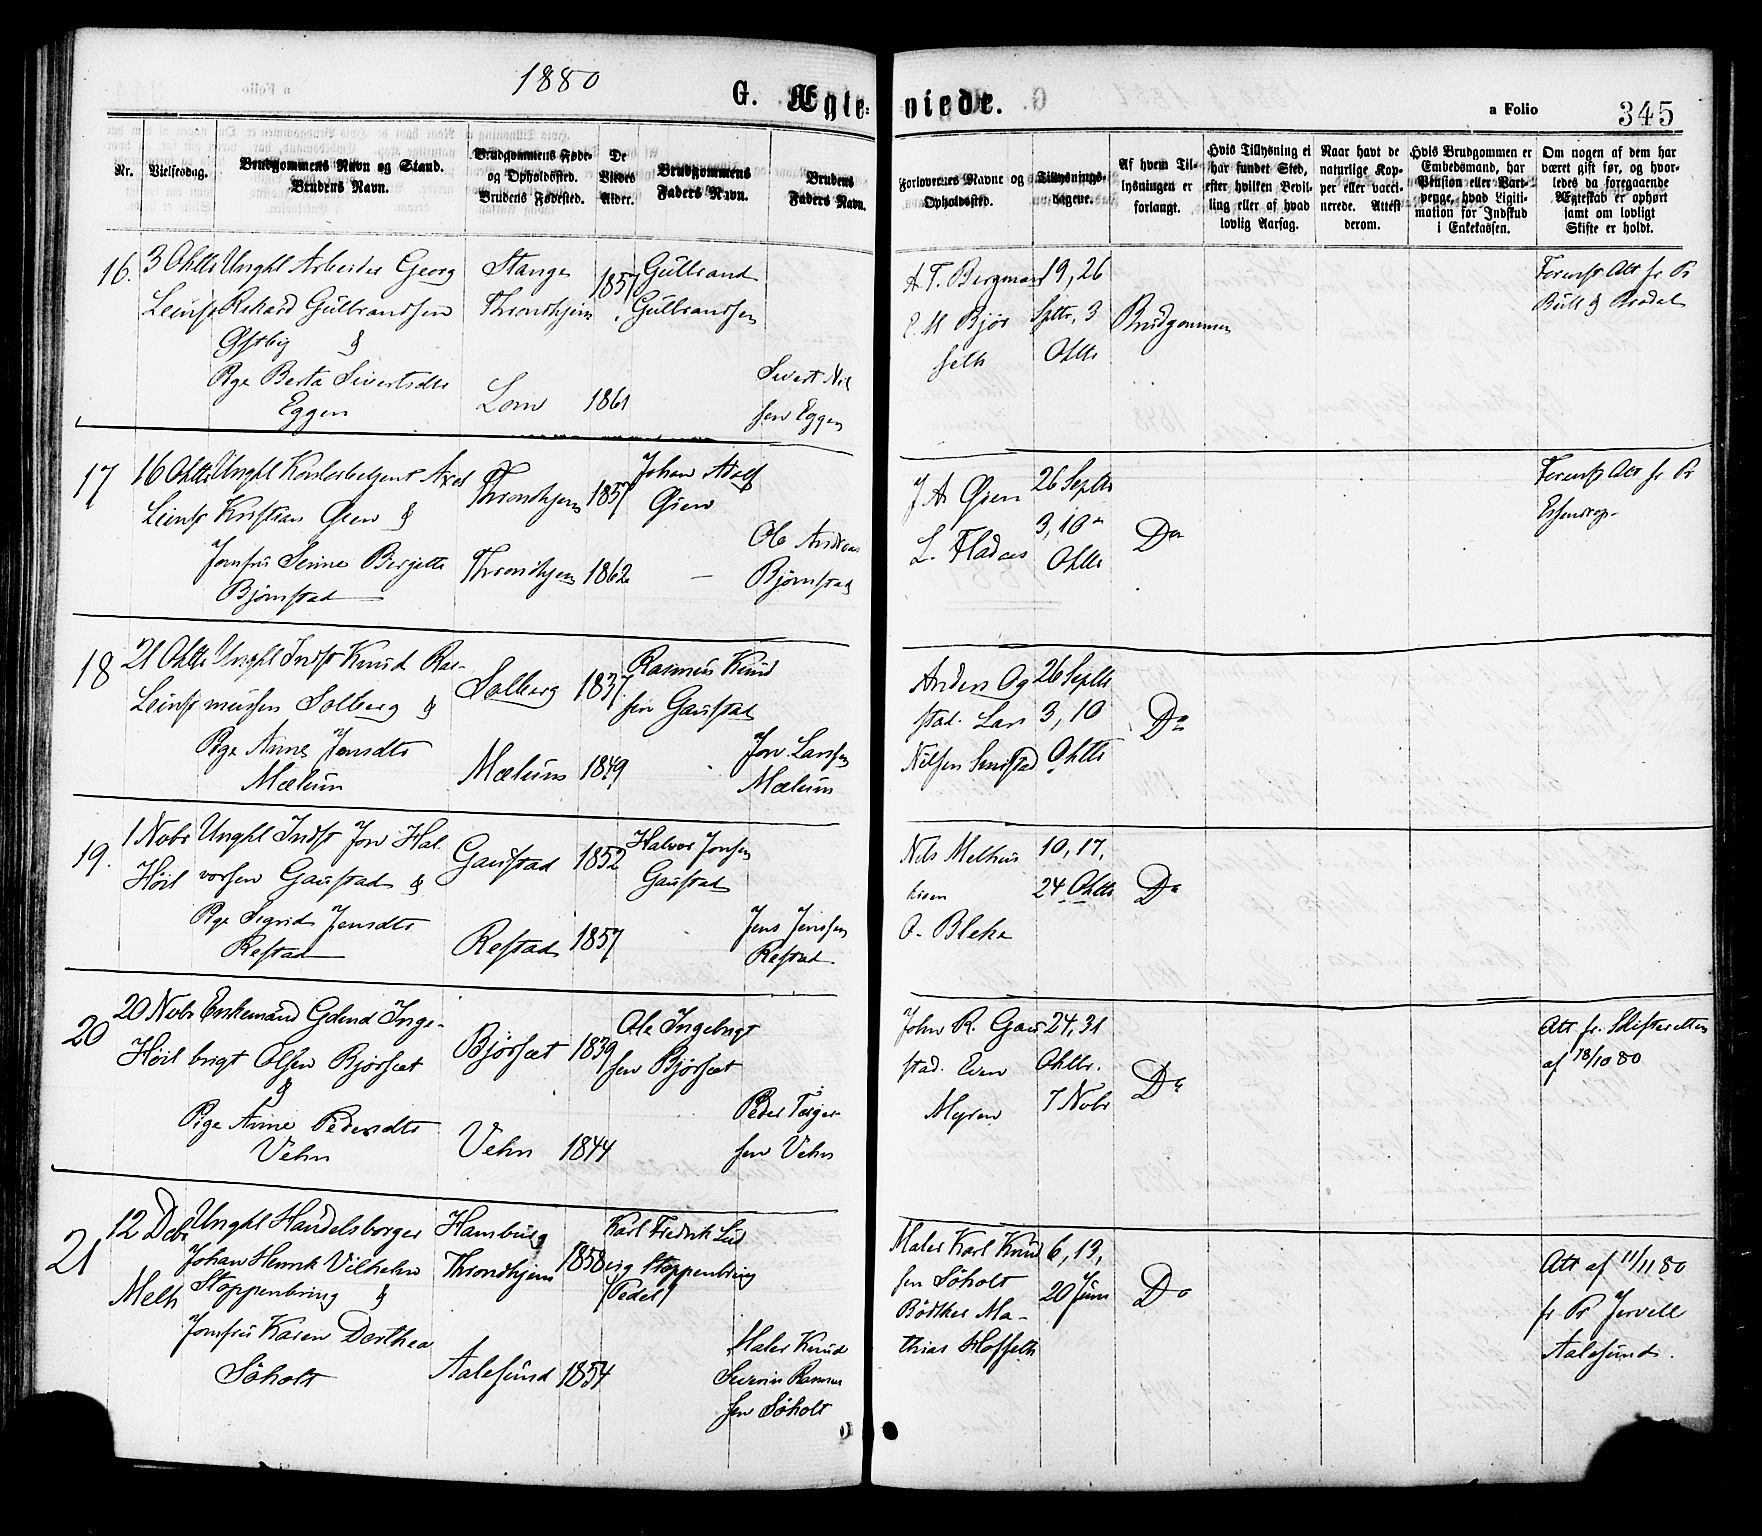 1880
G. Ægte-
viede.
a Folio
345
Nr.
Vielsesdag.
Brudgommens Navn og Stand.
Brudens Navn.
Brudgommens Føde-
og Opholdssted.
Brudens Fødested.
De
Viedes
Alder.
Brudgommens
Faders Navn.
Brudens
Faders Navn.
Forlovernes Navne og
Opholdssted.
Tillysnings-
dagene.
Af hvem Til-
lysningen er
forlangt.
Hvis Tillysning ei
har fundet Sted,
efter hvilken Bevil-
ling eller af hvad
lovlig Aarsag.
Naar havt de
naturlige Kop-
per eller vacci-
nerede. Attest
derom.
Hvis Brudgommen er
Embedsmand, har
Pension eller Vart-
penge, hvad Ligiti-
mation for Indskud
i Enkekassen.
Om nogen af dem har
været gift før, og hvor-
ledes da foregaaende
Ægteskab er ophørt
samt om lovligt
Skifte er holdt.
16.
3 Oktbr
Leinst
Ungkl Arbeider Georg
Rikard Gulbrandsen
Østby &
Pige Berta Sivertsdtr
Eggen
Stange
Throndhjem
Lom
1857
1861
Gulbrand
Gulbrandsen
Sivert Nil
sen Eggen
A. T. Bergman
E. M Bjør
seth
19, 26
Sptbr, 3
Oktbr
Brudgommen
Forevist Att fr Pr
Bull & Brodal
17
16 Oktbr
Leinst
Ungkl Kontorbetjent Axel
Kristian Øien &
Jomfru Senne Bergette
Bjørnstad
Throndhjem
Throndhjem
1857
1862
Johan Adolf
Øien
Ole Andreas
Bjørnstad
J A Øien
L. Fladaas
26 Septbr
3, 10
Oktbr
Do
Forevist Att fr Pr
Essendrop
18
21 Oktbr
Leinst
Ungkl Indst Knud Ras-
mussen Solberg &
Pige Anne Jonsdtr
Mælum
Solberg
Mælum
1837
1849
Rasmus Knud
sen Gaustad
Jon Larsen
Mælum
Anders Og
stad. Lars
Nilsen Smistad
26 Septbr
3, 10
Oktbr
Do
19.
1 Novbr
Høil
Ungkl Indst Jon Hal
vorsen Gaustad &
Pige Sigrid Jensdtr
Restad
Gaustad
Restad
1852
1857
Halvor Jonsen
Gaustad
Jens Jensen
Restad
Nils Melhus
O. Bleka
10, 17,
24 Oktbr
Do
20
20 Novbr
Høil
Enkemand Gdmd Inge-
brigt Olsen Bjørsæt
&
Pige Anne Pedersdtr
Vehn
Bjørsæt
Vehn
1839
1844
Ole Ingebrigt
sen Bjørsæt
Peder Torger-
sen Vehn
John R. Gau
stad. Even
Myren
24, 31
Oktbr.
7 Novbr
Do
Att fr. Skifteretten
af 18/10 80
21
12 Debr
Melh
Ungkl Handelsborger
Johan Henrik Vilhelm
Stoppenbring &
Jomfru Karen Dorthea
Søholt
Hamburg
Throndhjem
Aalesund
1858
1854
Karl Fredrik Lud
vig Stoppenbring
(Pedel)
Maler Knud
Severin Rasmus
sen Søholt
Maler Karl Knud
sen Søholt
Bødtker Ma-
thias Hoffseth
6, 13,
20 Juni
Do
Att af 11/11 80
fr Pr Jervell
Aalesund.